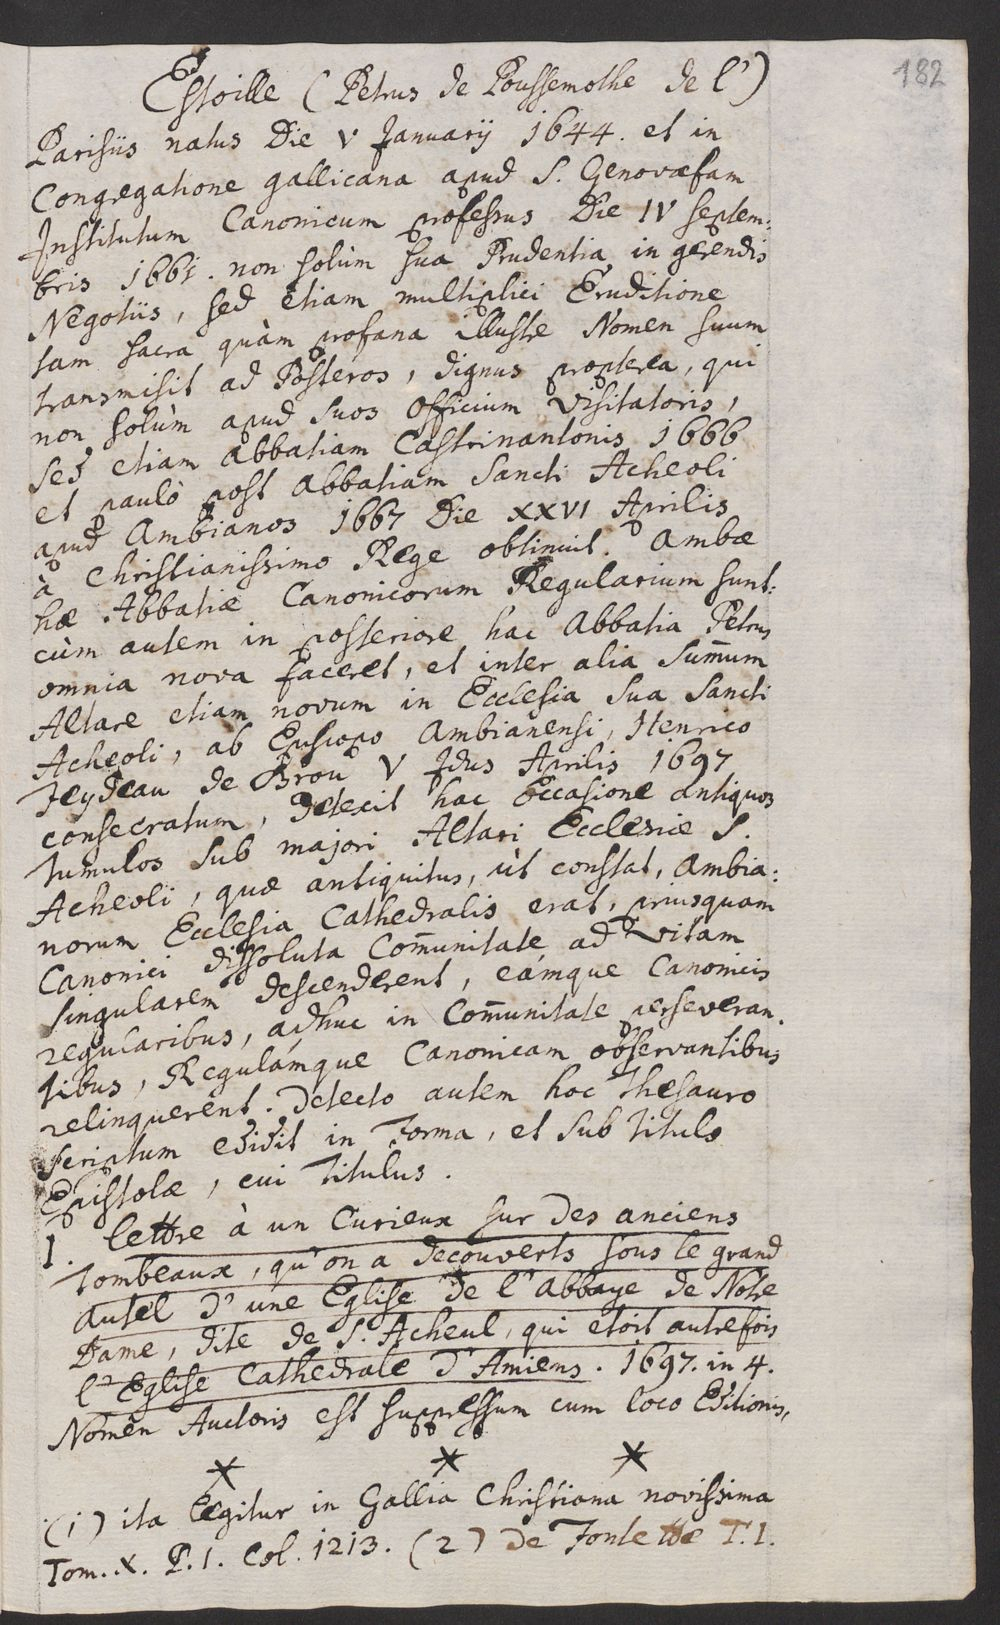 182
Estoille (Petrus de Poussemothe de l')
Parisiis natus Die V Januarij 1644. et in
Congregatione gallicana apud S. Genovæfam
Institutum Canonicum professus Die IV septem:
bris 1661. non solùm sua Prudentia in gerendis
Negotiis, sed etiam multiplici Eruditione
tam sacra quàm profana illustre Nomen suum
transmisit ad Posteros, dignus propterea, qui
non solùm apud suos officium Visitatoris,
sed etiam abbatiam Castrinantonis 1666
et paulò post abbatiam Sancti Acheoli
apud Ambianos 1667 Die XXVI Aprilis
à Christianissimo Rege obtinuit. Ambæ
hæ Abbatiæ Canonicorum Regularium sunt:
cùm autem in posteriore hac Abbatia Petrus
omnia nova faceret, et inter alia Sum̄um
Altare etiam novum in Ecclesia sua Sancti
Acheoli, ab Episcopo Ambianensi, Henrico
Feydeau de Brou V Idus Aprilis 1697
consecratum, detexit hac Occasione antiquos
tumulos sub majori Altari Ecclesiæ S.
Acheoli, quæ antiquitus, ùt constat, Ambia:
norum Ecclesia Cathedralis erat, priusquam
Canonici dissoluta Com̄unitate ad vitam
singularem descenderent, eámque Canonicis
regularibus, adhuc in Com̄unitate perseveran:
tibus, Regulámque Canonicam observantibus
relinquerent. Detecto autem hoc thesauro
scriptum edidit in Forma, et sub titulo
Epistolæ, cui Titulus.
1. lettre à un Curieux sur des anciens
Tombeaux, qu'on a decouverts sous le grand
autel d'une Eglise de l'abbaye de Notre
Dame, dite de S. Acheul, qui etoit autrefois
l'Eglise Cathedrale d'Amiens. 1697. in 4.
Nomen Auctoris est suppressum cum loco Editionis,
* * *
(1) ita legitur in Gallia Christiana novissima
Tom. X. P. 1. Col. 1213. (2) de Fontette T. I.